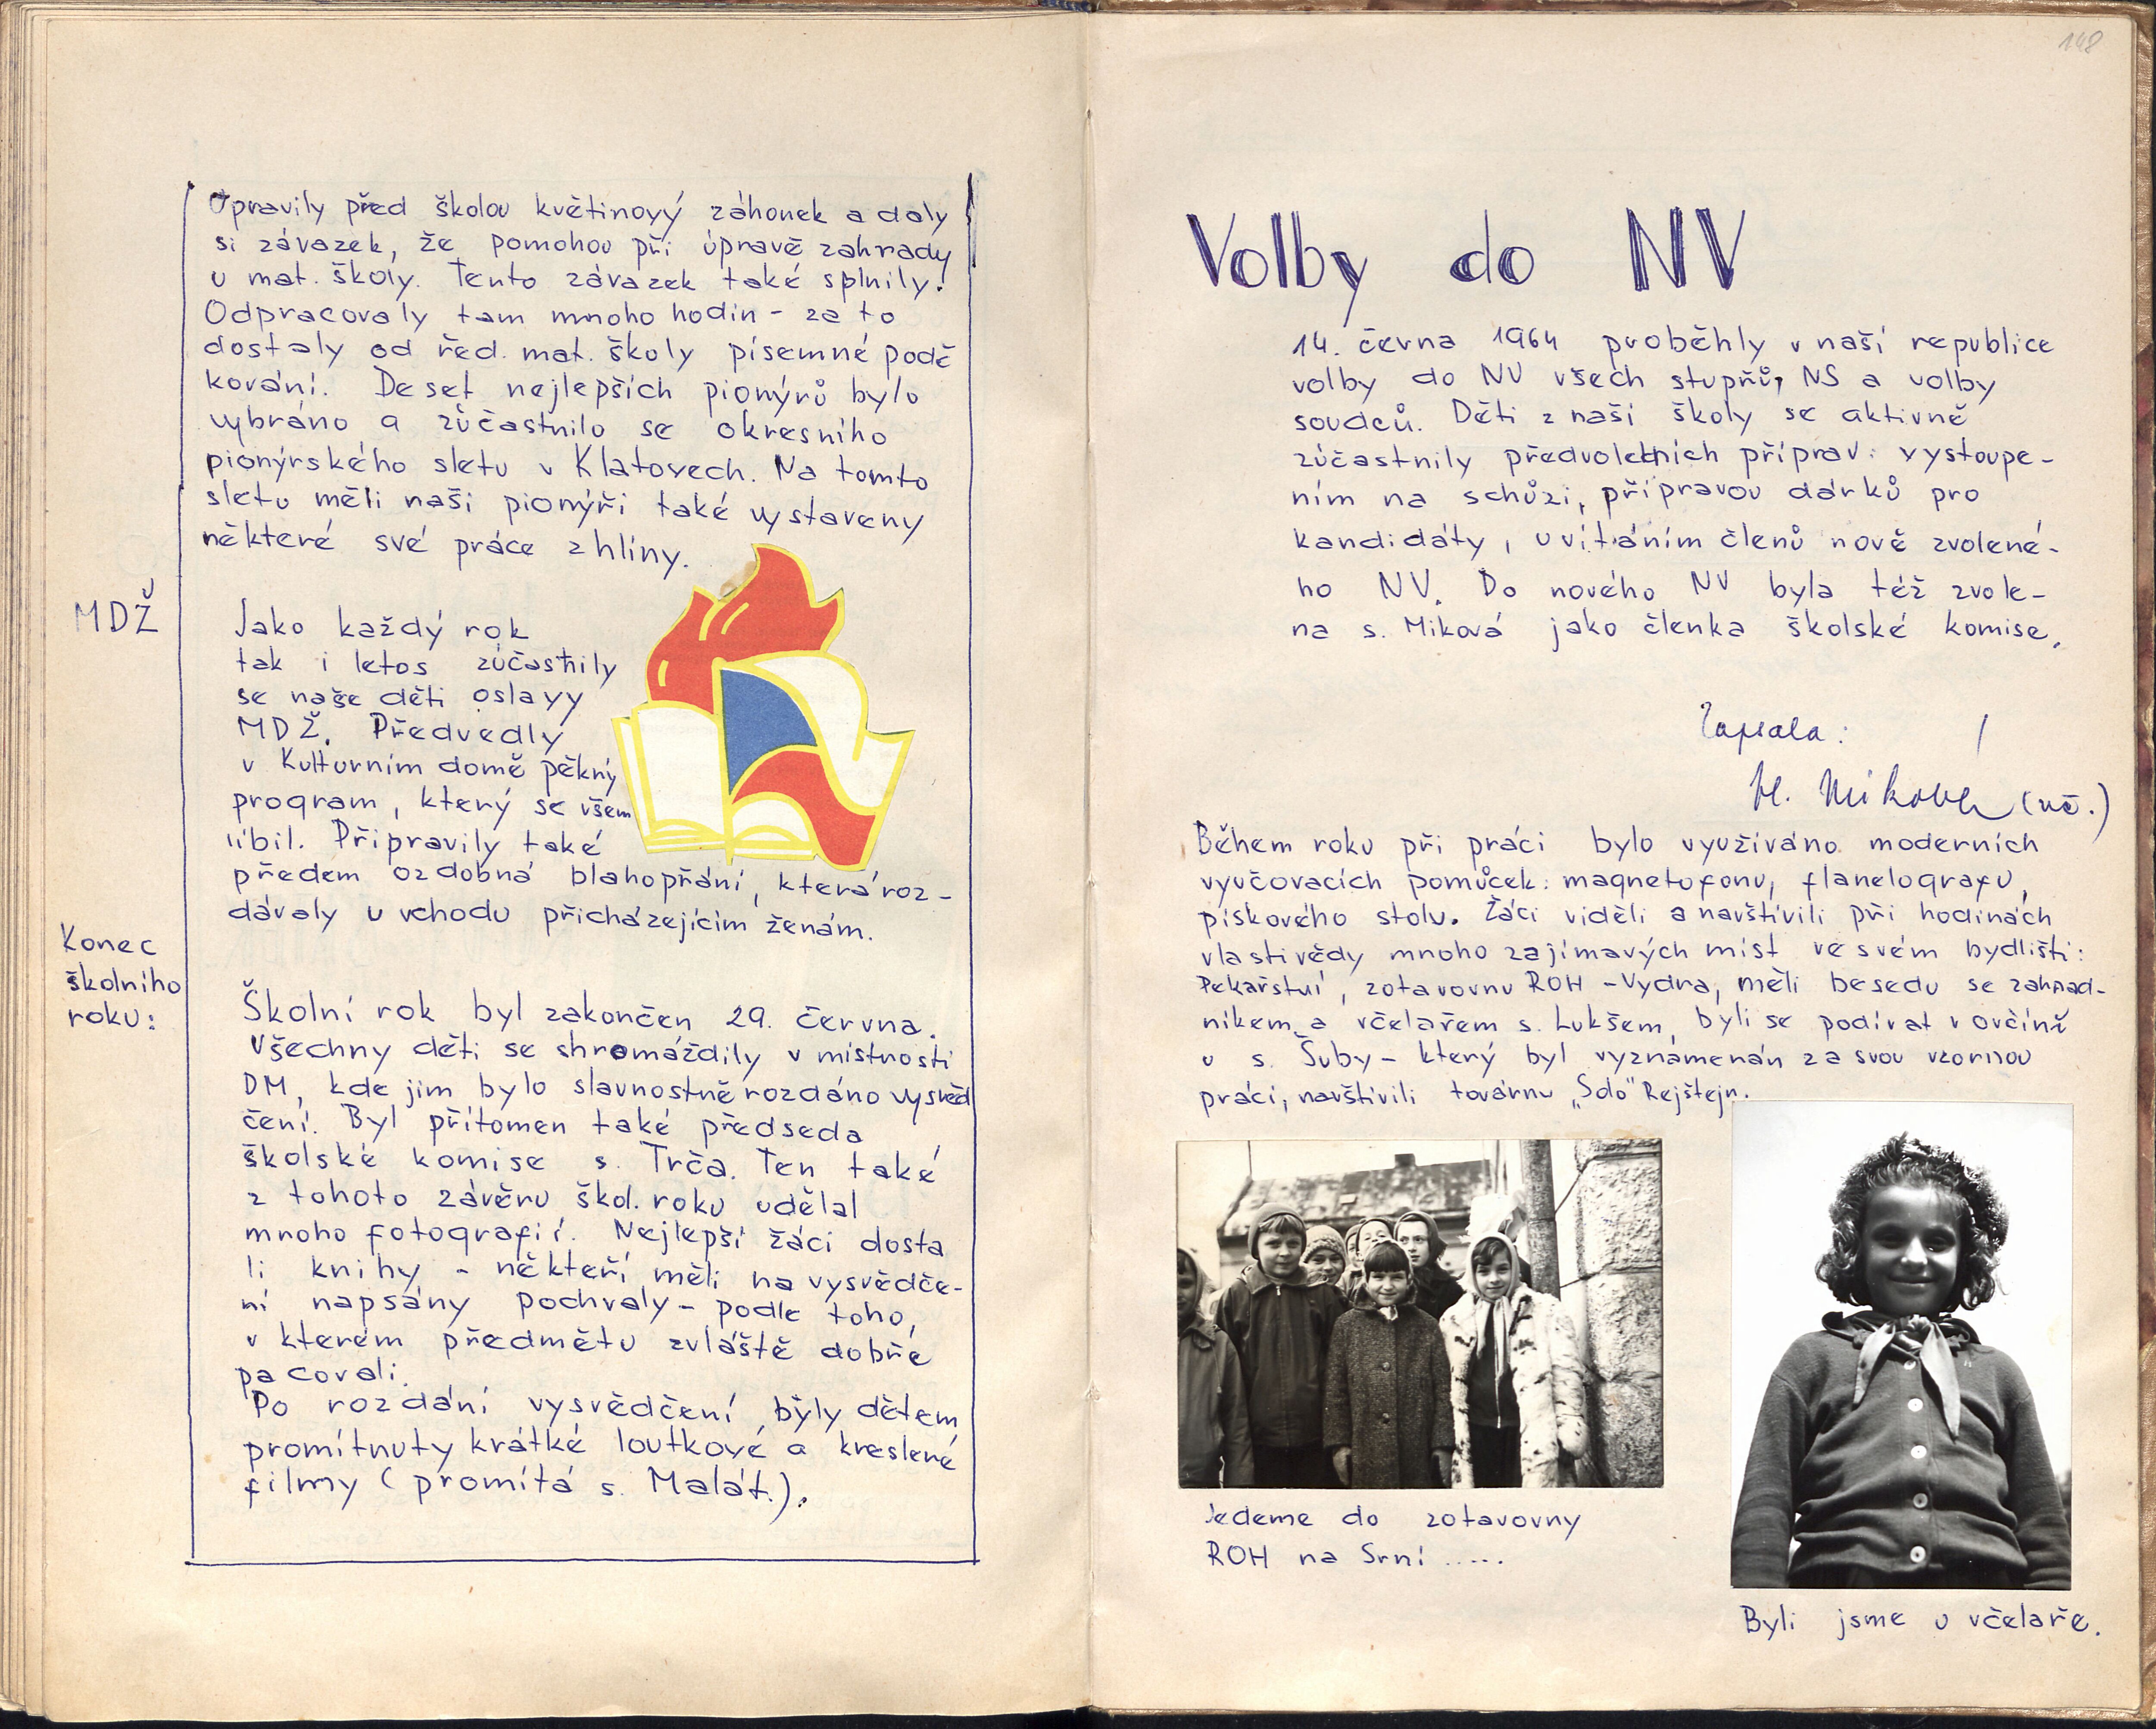 Upravily před školou květinový záhonek a daly
si závazek, že pomohou při úpravě zahrady
u mat. školy. Tento závazek také splnily.
Odpracovaly tam mnoho hodin - za to
dostaly od řed. mat. školy písemné podě
kování. Deset nejlepších pionýrů bylo
vybráno a zúčastnilo se okresního
pionýrského sletu v Klatovech. Na tomto
sletu měli naši pionýři také vystaveny
některé své práce z hlíny.
MDŽ
Jako každý rok
tak i letos zúčastnily
se naše děti oslavy
MDŽ. Předvedly
v Kulturním domě pěkný
program, který se všem
líbil. Připravily také
předem ozdobná blahopřání, která roz-
dávaly u vchodu přicházejícím ženám.
Konec
školního
roku:
Školní rok byl zakončen 29. června.
Všechny děti se shromáždily v místnosti
DM, kde jim bylo slavnostně rozdáno vysvěd
čení. Byl přítomen také předseda
školské komise s. Trča. Ten také
z tohoto závěru škol. roku udělal
mnoho fotografií. Nejlepší žáci dosta
li knihy - někteří měli na vysvědče-
ní napsány pochvaly - podle toho,
v kterém předmětu zvláště dobře
pacovali.
Po rozdání vysvědčení byly dětem
promítnuty krátké loutkové a kreslené
filmy (promítá s. Malát.).
148
Volby do NV
14. června 1964 proběhly v naší republice
volby do NV všech stupňů, NS a volby
soudců. Děti z naší školy se aktivně
zúčastnily předvolebních příprav: vystoupe-
ním na schůzi, přípravou dárků pro
kandidáty, uvítáním členů nově zvolené-
ho NV. Do nového NV byla též zvole-
na s. Miková jako členka školské komise.
Zapsala:
M. Miková (uč.)
Během roku při práci bylo využíváno moderních
vyučovacích pomůcek: magnetofonu, flanelografu,
pískového stolu. Žáci viděli a navštívili při hodinách
vlastivědy mnoho zajímavých míst ve svém bydlišti:
Pekařství, zotavovnu ROH - Vydra, měli besedu se zahrad-
níkem a včelařem s. Lukšem, byli se podívat v ovčíně
u s. Šuby - který byl vyznamenán za svou vzornou
práci, navštívili továrnu „Solo" Rejštejn.
Jedeme do zotavovny
ROH na Srní .....
Byli jsme u včelaře.